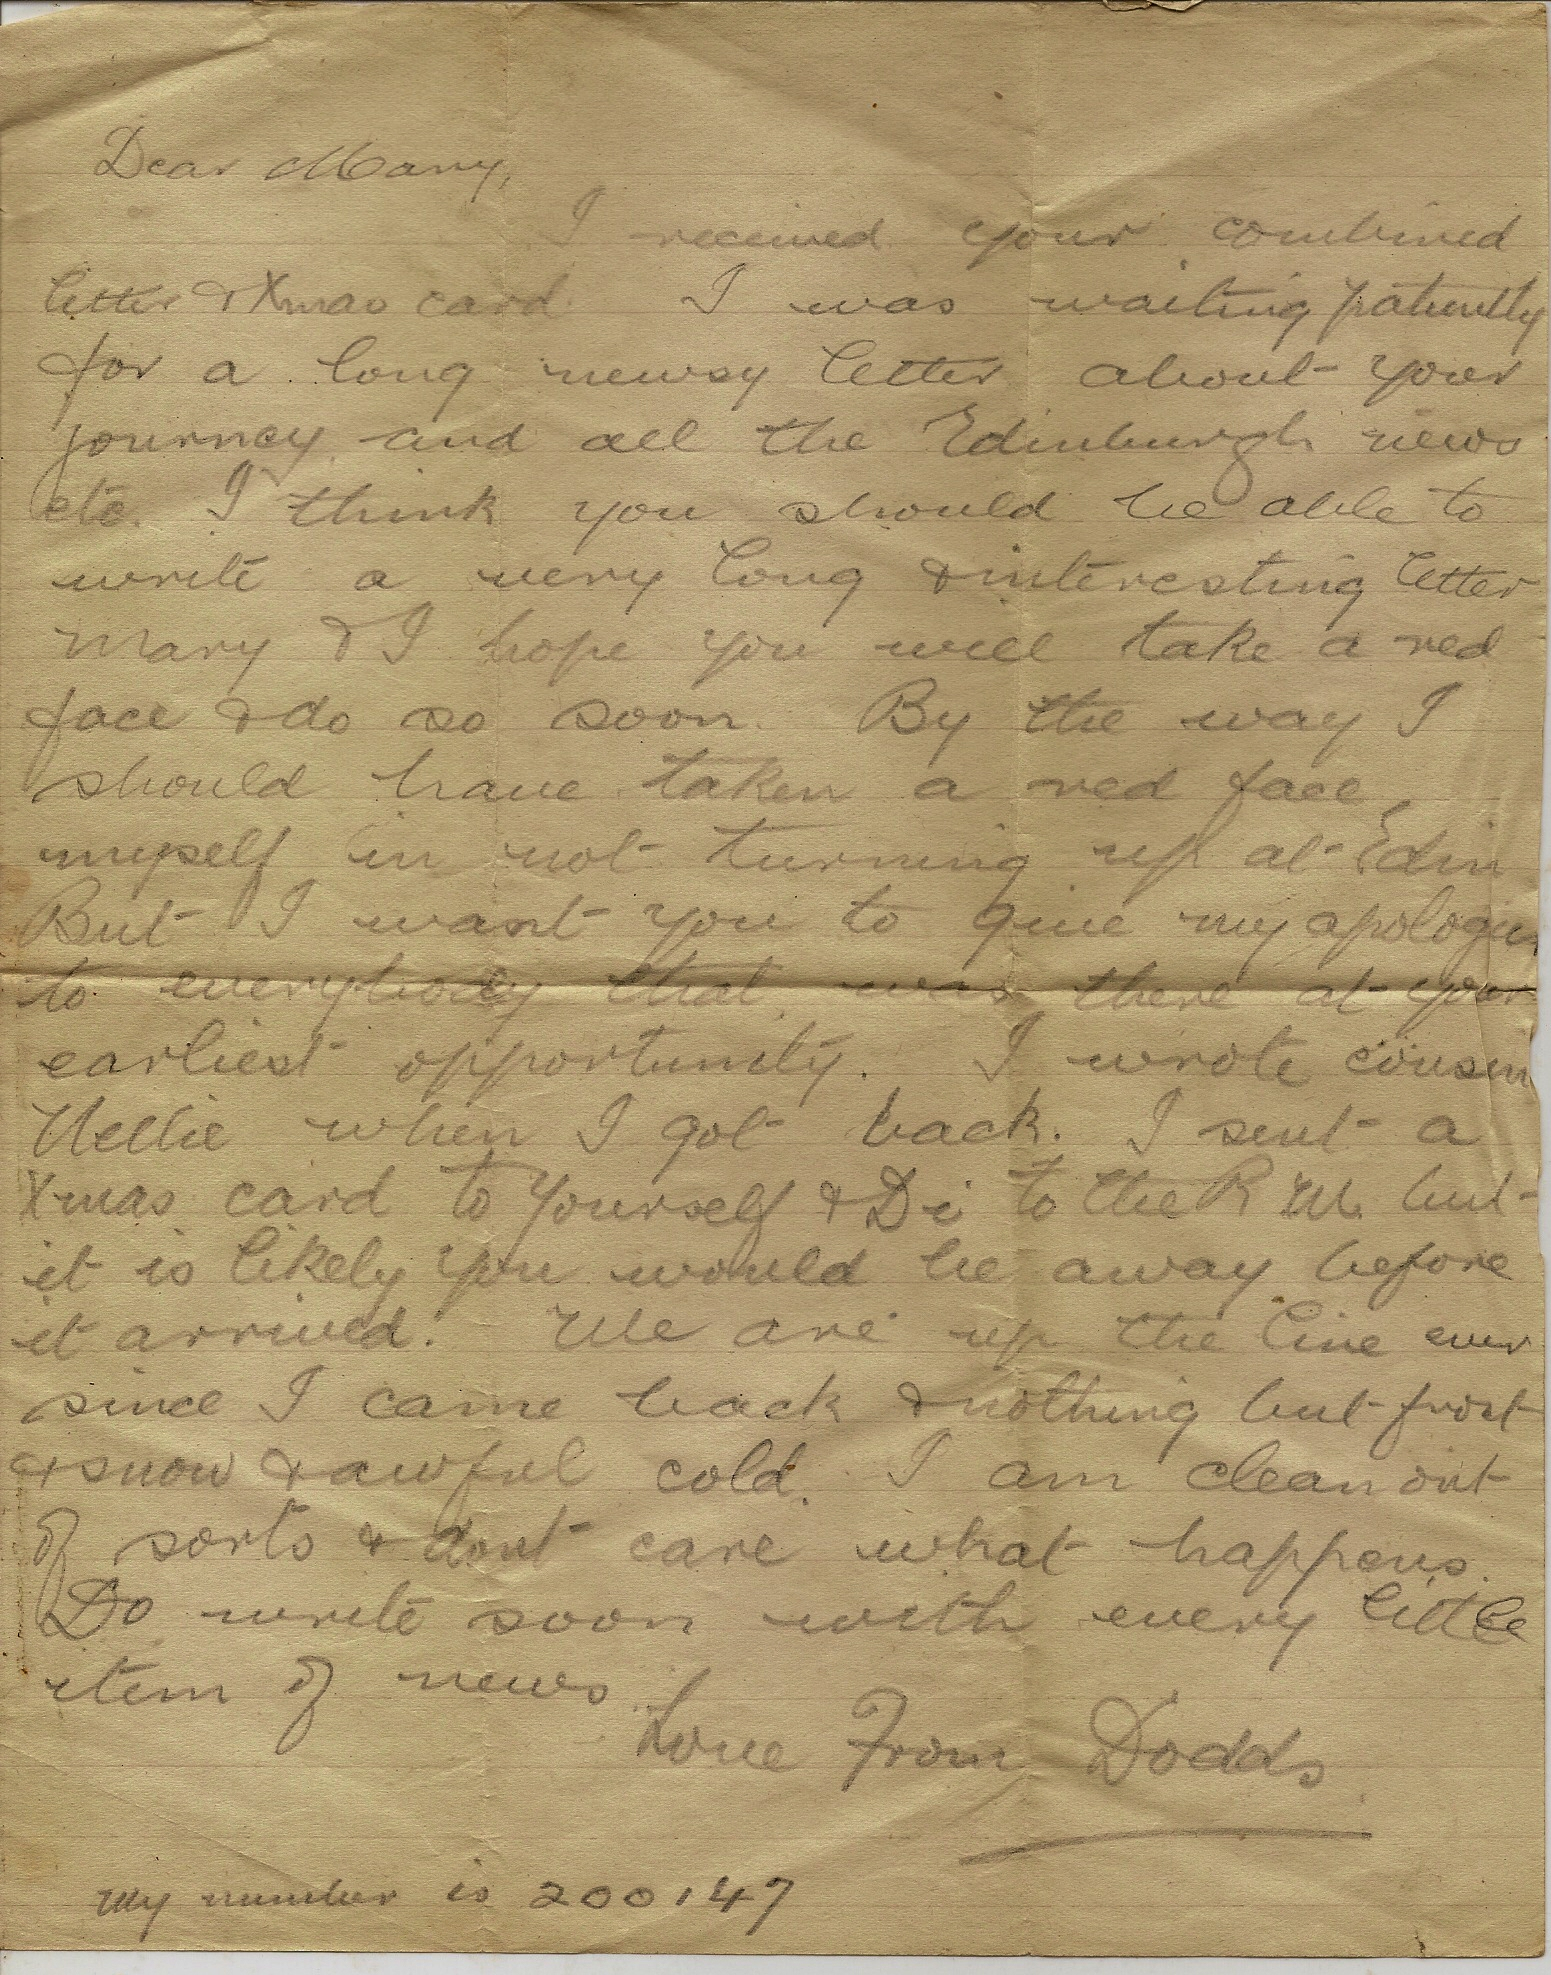 Dear Mary,
I received your combined
letter & Xmas card. I was waiting patiently
for a long newsy letter about your
journey and all the Edinburgh news
etc. I think you should be able to
write a very long & interesting letter
Mary & I hope you will take a red
face & do so soon. By the way I
should have taken a red face
myself in not turning up at Edin
But I want you to give my apologies
to everybody that was there at your
earliest opportunity. I wrote cousin
Nellie when I got back. I sent a
Xmas card to Yourself & Di to the R.W. but
it is likely you would be away before
it arrived. We are up the line ever
since I came back & nothing but frost
& snow & awful cold. I am clean out
of sorts & dont care what happens.
Do write soon with every little
item of news.
Love From Dodds
My number is 200147